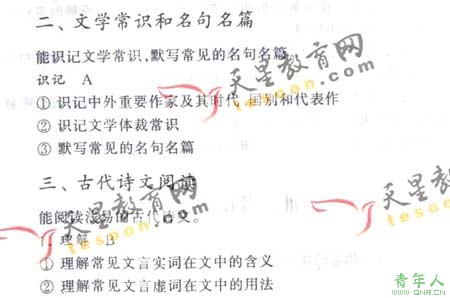 二、文学常识和名句名篇
能识记文学常识、默写常见的名句名篇。
识记 A
① 识记中外重要作家及其时代、国别和代表作
② 识记文学体裁常识
③ 默写常见的名句名篇
天星教育网
tesoon.com
三、古代诗文阅读
能阅读浅易的古代诗文。
1. 理解 B
① 理解常见文言实词在文中的含义
② 理解常见文言虚词在文中的用法
天星教育网
tesoon.com
天星教育网
tesoon.com
青年人
www.QNR.CN